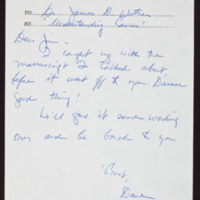 TO: Dr. James D. Watson
RE: "Understanding Cancer"
Dear Jim -
I caught my with the
manuscript I talked about
before it went off to you. Damn
good thing!
We'll get it some working
over and be back to you
Best,